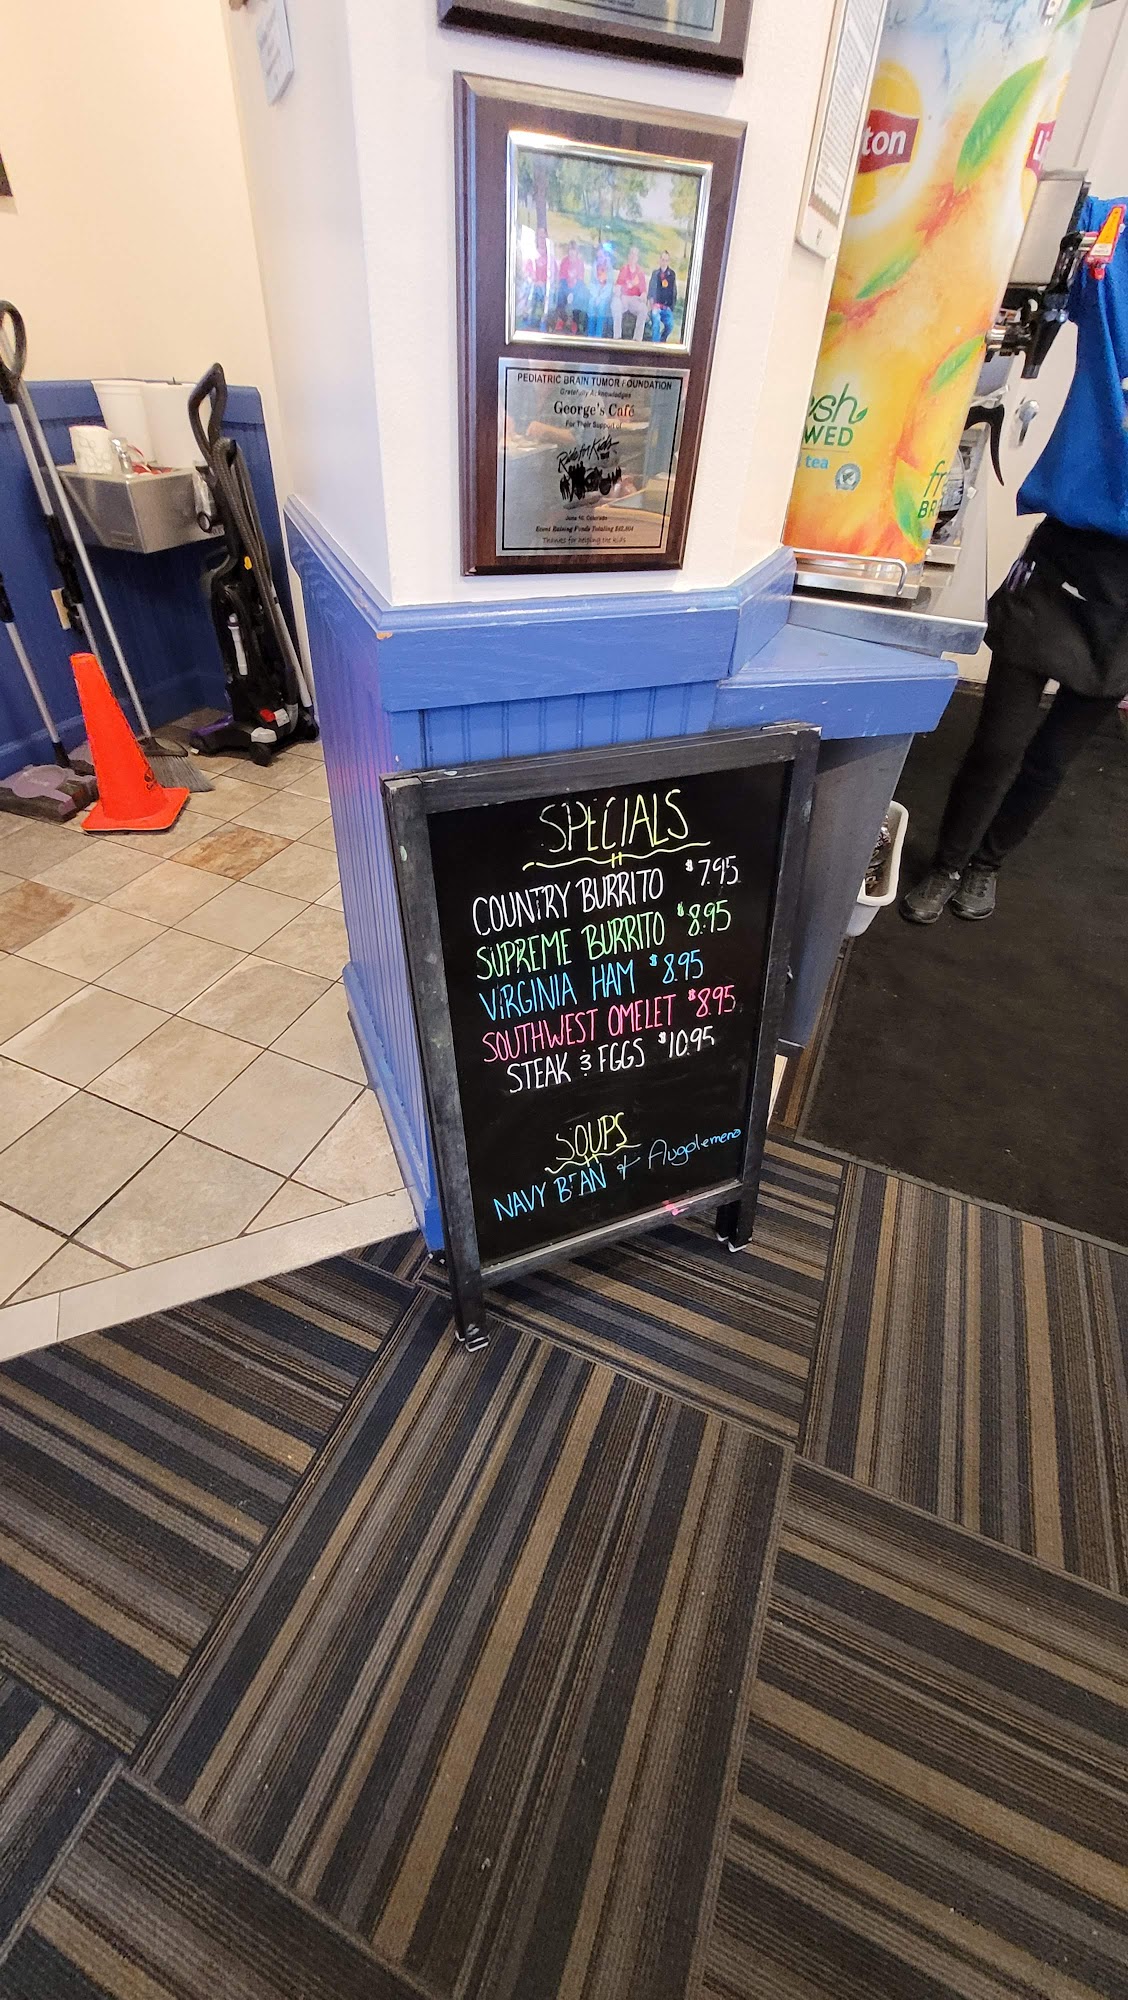 PEDIATRIC BRAIN TUMOR FOUNDATION
Gratefully Acknowledges
George's Café
For Their Support of
Ride for Kids
Colorado
Event Raising Funds Totaling
Thanks for helping the kids
ton
Li
esh
WED
tea
fr
BR
SPECIALS
COUNTRY BURRITO $7.95
SUPREME BURRITO $8.95
VIRGINIA HAM $8.95
SOUTHWEST OMELET $8.95
STEAK & EGGS $10.95
SOUPS
NAVY BEAN & Avgolemeno